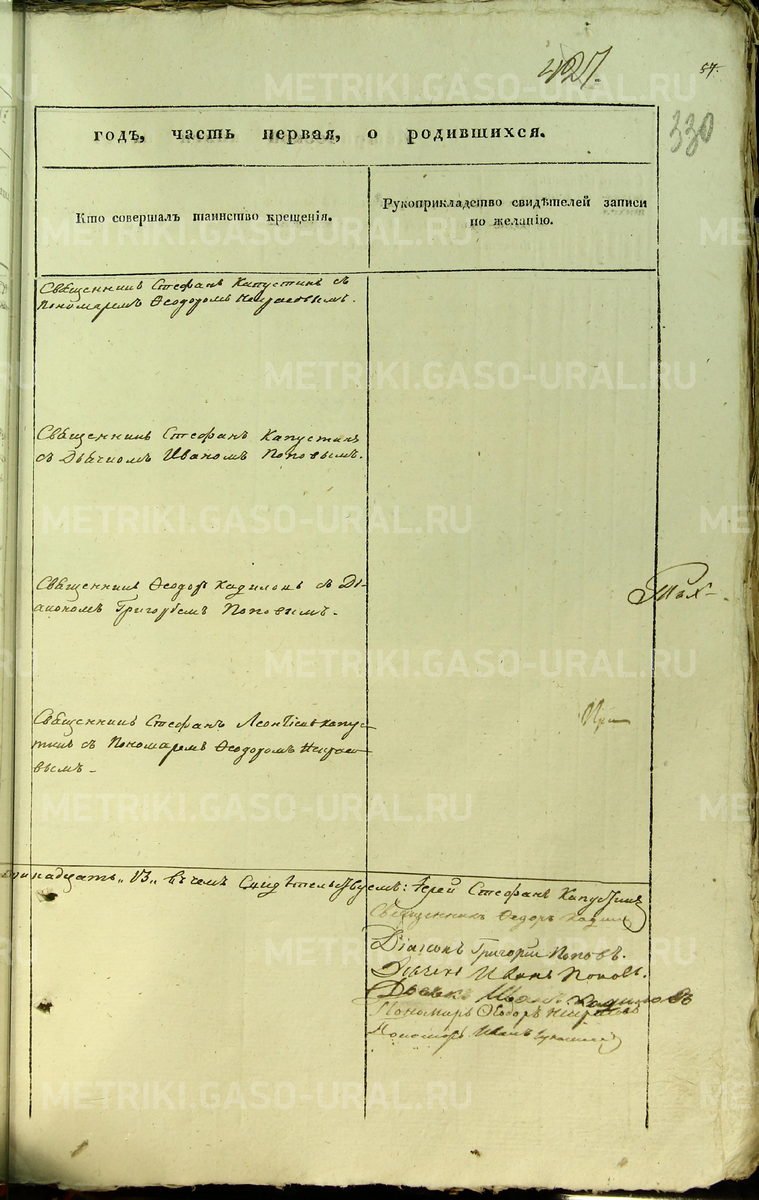 427.
57.
330
годъ, часть первая, о родившихся.
Кто совершалъ таинство крещенія.
Рукоприкладство свидѣтелей записи
по желанію.
Священникъ Стефанъ Капустинъ съ
Пономаремъ Ѳеодоромъ
Священникъ Стефанъ Капустинъ
съ Дьячкомъ Иваномъ Поповымъ.
Священникъ Ѳеодоръ Кадиловъ съ Ді-
акономъ Григорьемъ Поповымъ.
Священникъ Стефанъ Леонтіевъ Капус-
тинъ съ Пономаремъ Ѳеодоромъ
вымъ
надцать „13„ въ чемъ Свидѣтельствуемъ: Іерей Стефанъ Капустинъ
Священникъ Ѳедоръ
Діаконъ Григорій Поповъ.
Дьячекъ Иванъ Поповъ.
Дьячекъ Иванъ Кадиловъ
Пономарь Ѳеодоръ
Пономарь Иванъ
METRIKI.GASO-URAL.RU